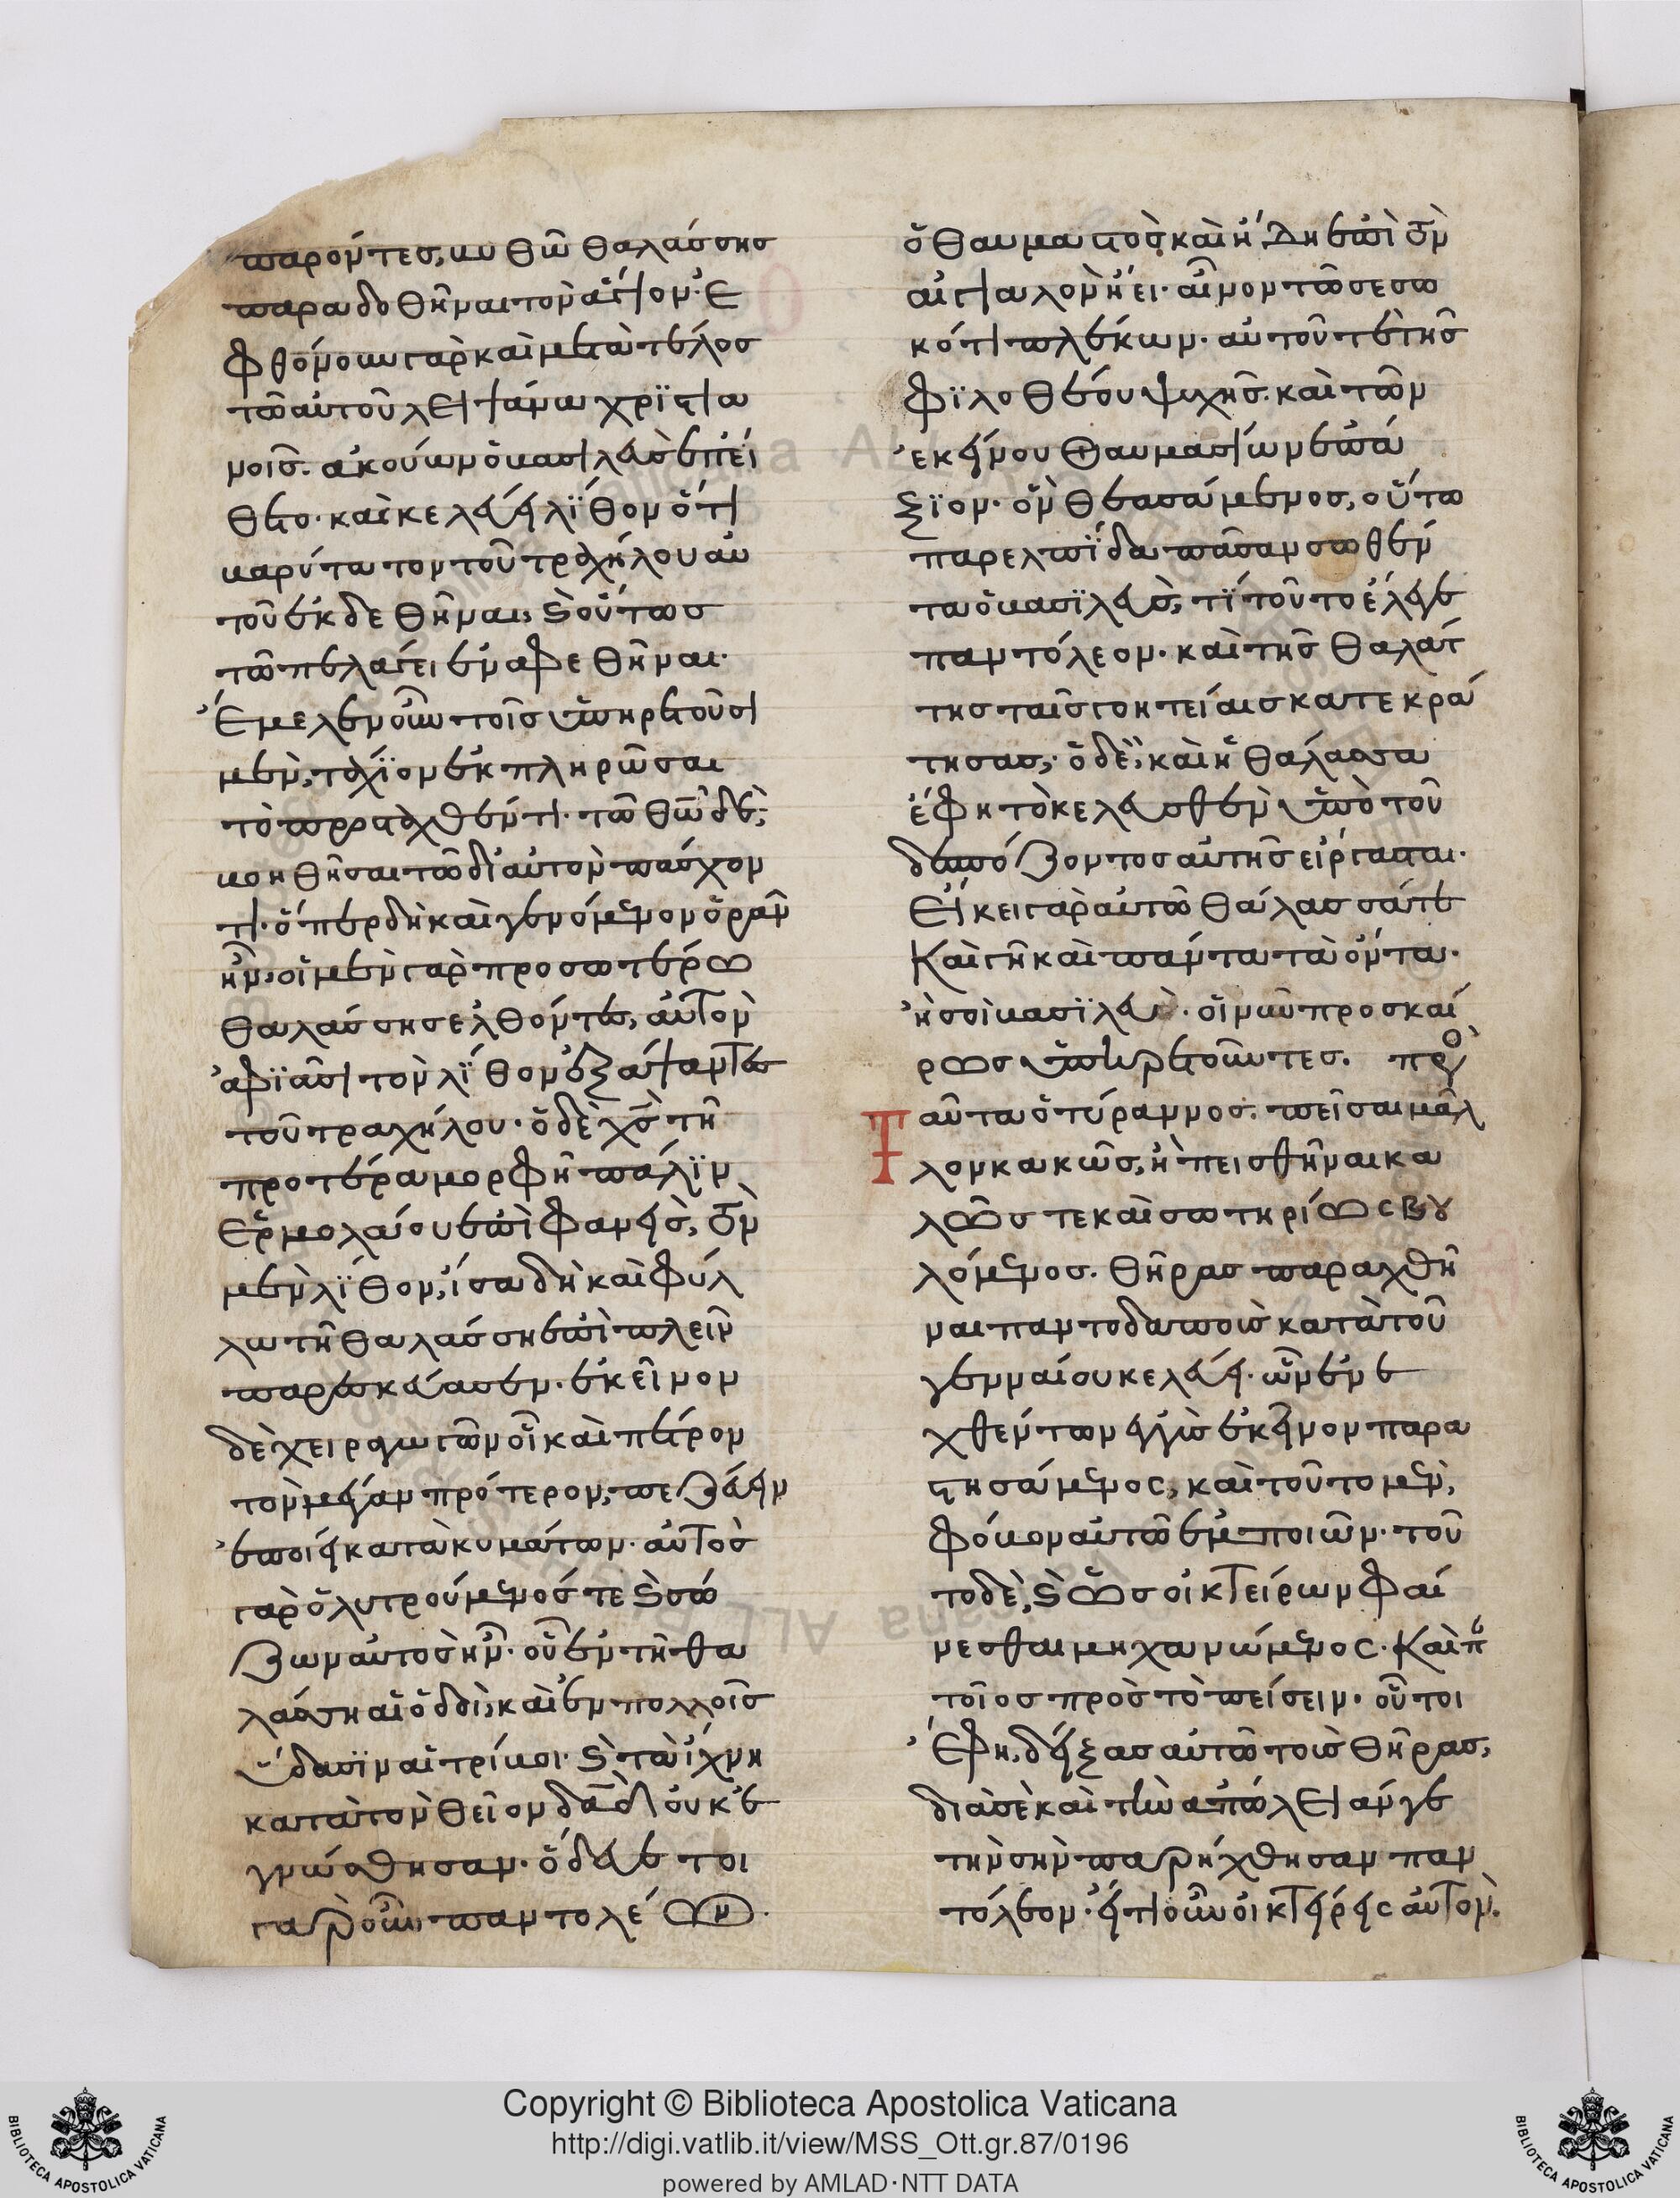 παρόντες, βυθῶ θαλάσσης
παραδοθῆναι τὸν ἅγιον· ἐ
φθόνουν γὰρ καὶ μετὰ τέλος
τῶ αὐτοῦ λειψάνω χριστια
νοῖς. ἀκούων ὁ βασιλεὺς ἐπεί
θετο· καὶ κελεύει λίθον ὅτι
βαρύτατον τοῦ τραχήλου αὐ
τοῦ ἐκδεθῆναι, καὶ οὕτως
τῶ πελάγει ἐναφεθῆναι.
Ἔμελεν οὖν τοῖς ὑπηρετοῦσι
μὲν, τάχιον ἐκπληρῶσαι
τὸ προσταχθέντι· τῶ θῶ δὲ,
βοηθῆσαι τῶ δι αὐτὸν πάσχον
τι· ὅπερ δὴ καὶ γενόμενον ὁρᾶν
ἦν, οἱ μὲν γὰρ προσωτέρω
θαλάσσης ἐλθόντες, αὐτὸν
ἀφιᾶσι τὸν λίθον ἐξάψαντες
τοῦ τραχήλου· ὁ δὲ χς τῆ
προτέρα μορφῆ πάλιν
Ἑρμολάου ἐπιφανεὶς, τὸν
μὲν λίθον, ἴσα δὴ καὶ φύλ
λω τῆ θαλάσση ἐπιπλεῖν
παρεσκεύασεν. ἐκεῖνον
δὲ χειραγωγῶν οἷα καὶ πέτρον
τὸν μέγαν πρότερον, πεζεύειν
ἐποίει κατὰ κυμάτων. αὐτὸς
γὰρ ὁ λυτρούμενός τε καὶ σώ
ζων αὐτὸς ἦν. οὗ ἐν τῆ θα
λάσση αἱ ὁδοὶ, καὶ ἐν πολλοῖς
ὕδασιν αἱ τρίβοι· καὶ τὰ ἴχνη
κατὰ τὸν θεῖον δαδ οὐκ ἐ
γνώσθησαν. ὁ δ' εὐεστοι
γαροῦν παντολέων.
ὁ θαυμαστὸς καὶ ἤδη ἐπὶ τὸν
αἰγιαλὸν ἤει· αἶνον τῶ σεσω
κότι πλέκων. αὐτοῦ τε τῆς
φιλοθέου ψυχῆς. καὶ τῶν
ἐκείνου θαυμασίων ἐπά
ξιον. ὃν θεασάμενος, οὕτω
παρ ἐλπίδα πᾶσαν σωθέν
τα ὁ βασιλεὺς, τί τοῦτο ἔλεγε
παντόλεον· καὶ τῆς θαλάτ
της ταῖς γοητείαις κατεκρά
τησας; ὁ δὲ, καὶ ἡ θάλασσα
ἔφη τὸ κελευσθὲν ὑπὸ τοῦ
δεσπόζοντος αὐτῆς εἴργασται.
Εἴκει γὰρ αὐτῶ θάλασσά τε
Καὶ γῆ καὶ πάντα τὰ ὄντα.
ἢ σοὶ βασιλεῦ· οἱ νῦν προσκαί
ρως ὑπηρετοῦντες. πρὸς
Ταῦτα ὁ τύραννος. πεῖσαι μᾶλ
λον κακῶς, ἢ πεισθῆναι κα
λῶς τε καὶ σωτηρίως βου
λόμενος. θῆρας παραχθῆ
ναι παντοδαποὺς κατὰ τοῦ
γενναίου κελεύει. ὧν ἐνε
χθέντων εἰς ἐκεῖνον παρα
στησάμενος, καὶ τοῦτο μὲν,
φόβον αὐτῶ ἐμποιῶν. τοῦ
το δὲ, καὶ ὡς οἰκτείρων φαί
νεσθαι μηχανώμενος. Καὶ ποι
τοῖος πρὸς τὸ πείσειν. οὗτοι
Ἔφη, δείξας αὐτῶ τοὺς θῆρας,
διὰ σὲ καὶ τὴν ἀπώλειάν γε
τὴν σὴν παρήχθησαν παν
τόλεον. εἴ τι οὖν οἰκτείρεις αὐτὸν.
Copyright © Biblioteca Apostolica Vaticana
http://digi.vatlib.it/view/MSS_Ott.gr.87/0196
powered by AMLAD·NTT DATA
BIBLIOTECA APOSTOLICA VATICANA
BIBLIOTECA APOSTOLICA VATICANA